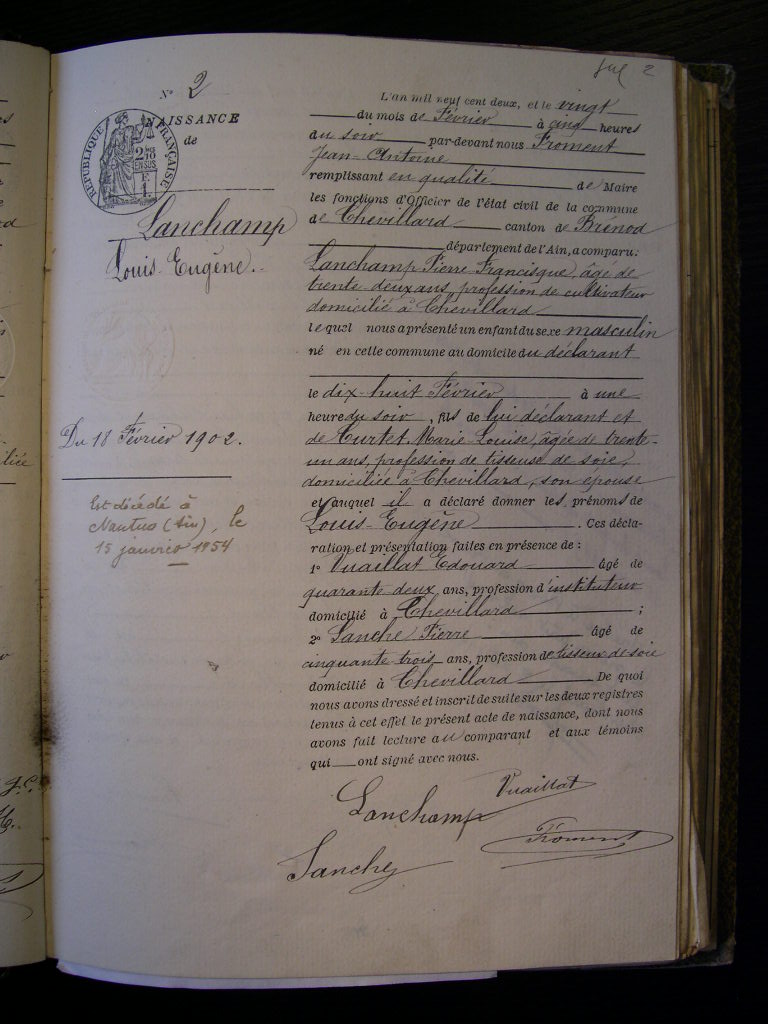 N° 2
NAISSANCE
de
RÉPUBLIQUE FRANÇAISE
2/10
EN SUS
Lanchamp
Louis-Eugène.
Du 18 Février 1902.
Est décédé à
Nantua (Ain), le
15 janvier 1954
2
L'an mil neuf cent deux, et le vingt
du mois de Février à cinq heures
du soir par-devant nous Froment
Jean-Antoine
remplissant en qualité de Maire
les fonctions d'Officier de l'état civil de la commune
de Chevillard canton de Brénod
département de l'Ain, a comparu:
Lanchamp Pierre Francisque, âgé de
trente-deux ans, profession de cultivateur
domicilié à Chevillard
lequel nous a présenté un enfant du sexe masculin
né en cette commune au domicile du déclarant
le dix-huit Février à une
heure du soir, fils de lui déclarant et
de Curtet, Marie-Louise, âgée de trente-
un ans, profession de tisseuse de soie,
domiciliée à Chevillard, son épouse
et auquel il a déclaré donner les prénoms de
Louis-Eugène. Ces décla-
ration et présentation faites en présence de :
1° Vuaillat Edouard âgé de
quarante-deux ans, profession d'instituteur
domicilié à Chevillard ;
2° Lanche Pierre âgé de
cinquante-trois ans, profession de tisseur de soie
domicilié à Chevillard. De quoi
nous avons dressé et inscrit de suite sur les deux registres
tenus à cet effet le présent acte de naissance, dont nous
avons fait lecture au comparant et aux témoins
qui ont signé avec nous.
Vuaillat
Lanchamp
Froment
Lanche